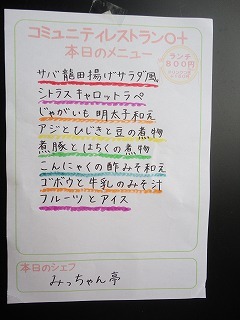 コミュニティレストラン
本日のメニュー
ランチ
800円
サバ龍田揚げサラダ風
シトラスキャロットラペ
じゃがいも明太子和え
アジとひじきと豆の煮物
煮豚とはちくの煮物
こんにゃくの酢みそ和え
ゴボウと牛乳のみそ汁
フルーツとアイス
本日のシェフ
みっちゃん亭